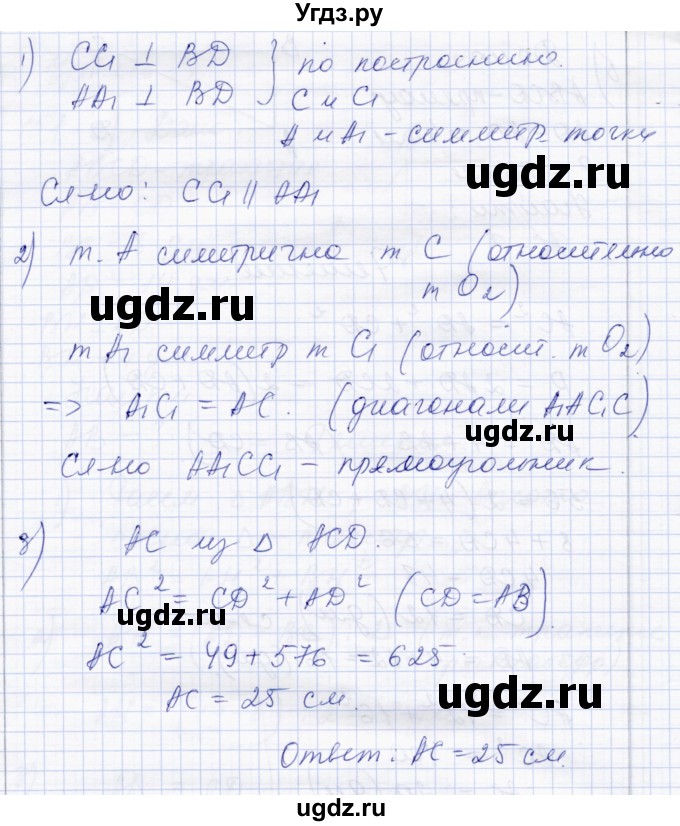 Угдз.ру
1) CC₁ ⊥ BD } по построению.
AA₁ ⊥ BD } C и C₁
A и A₁ - симметр. точки
ugdz.ru
Сл-но: CC₁ || AA₁
2) т. A симетрична т C (относительно
т O₂)
ugdz.ru
т A₁ симметр т C₁ (относит. т O₂)
=> A₁C₁ = AC. (диагонали A₁AC₁C)
ugdz.ru
Сл-но AA₁CC₁ - прямоугольник.
3) AC из Δ ACD.
AC² = CD² + AD² (CD = AB).
ugdz.ru
AC² = 49 + 576 = 625.
AC = 25 см.
ugdz.ru
Ответ: AC = 25 см.
ugdz.ru